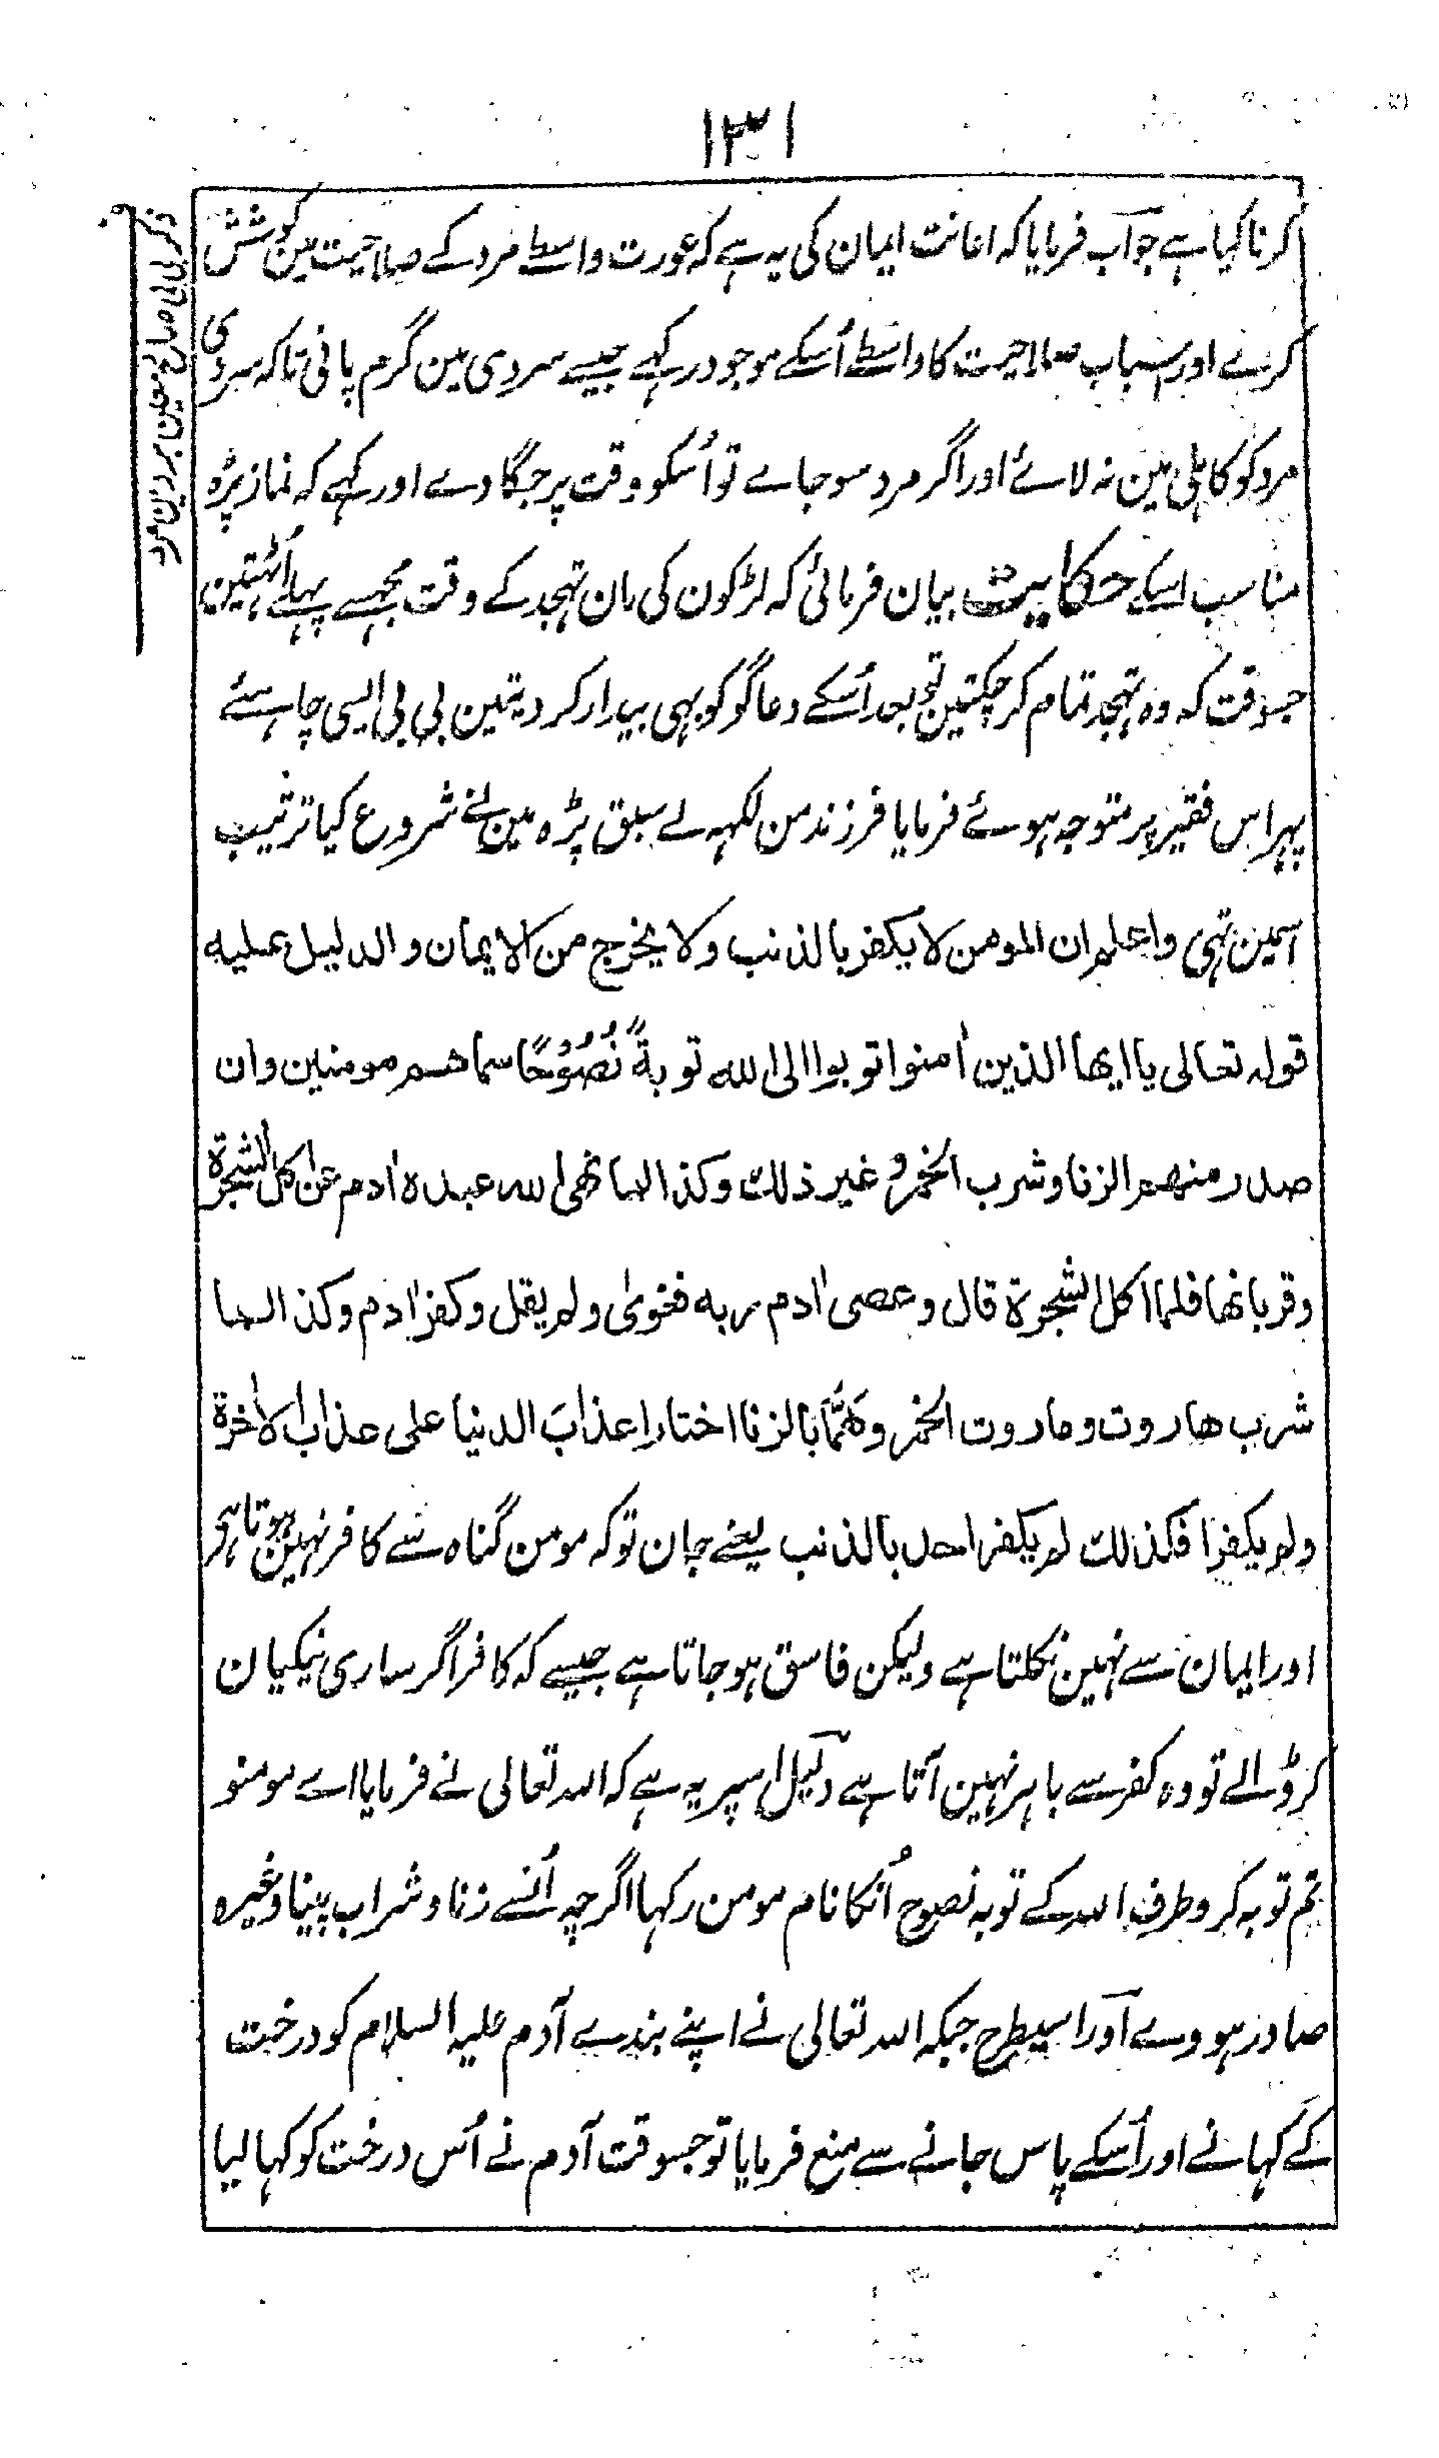 ۱۳۱
کرنا کیا ہے جواب فرمایا کہ اعانت ایمان کی یہ ہے کہ عورت واسطے مرد کے صلاحیت مین کوشش
کرے اور اسباب صلاحیت کا واسطے اُسکے موجود رکہے جیسے سردی مین گرم پانی تاکہ سردی
مرد کو کاہلی مین نہ لائے اور اگر مرد سو جاے تو اُسکو وقت پر جگا دے اور کہے کہ نماز پڑہ
مناسب اسکے حکایت بیان فرمائی کہ لڑکون کی مان تہجد کے وقت مجہسے پہلے اُٹہتین
جسوقت کہ وہ تہجد تمام کر چکتین تو بعد اُسکے دعا گو کو بہی بیدار کر دیتین بی بی ایسی چاہئے
پہر اس فقیر پر متوجہ ہوئے فرمایا فرزند من لکہہ لے سبق پڑہ مین نے شروع کیا ترتیب
اسمین تہی واعلم ان المومن لا یکفر بالذنب ولا یخرج من الایمان والدلیل علیہ
قولہ تعالی یا ایھا الذین اٰمنوا توبوا الی اللہ توبةً نَّصُوْحًا سماھم مومنین وان
صدر منھم الزنا وشرب الخمر و غیر ذلک وکذا لما نھی اللہ عبدہ اٰدم عن اکل الشجرة
وقربانھا فلما اکل الشجرة قال وعصی اٰدم ربہ فغوٰی ولم یقل وکفر اٰدم وکذا لما
شرب ھاروت وماروت الخمر وھَمَّا بالزنا اختارا عذابَ الدنیا علی عذاب الاٰخرة
ولم یکفرا فکذلک لم یکفر احد بالذنب یعنے جان تو کہ مومن گناہ سے کافر نہین ہوتا ہی
اور ایمان سے نہین نکلتا ہے ولیکن فاسق ہو جاتا ہے جیسے کہ کافر اگر ساری نیکیان
کر ڈالے تو وہ کفر سے باہر نہین آتا ہے دلیل اسپر یہ ہے کہ اللہ تعالی نے فرمایا اے مومنو
تم توبہ کرو طرف اللہ کے توبہ نصوح اُنکا نام مومن رکہا اگرچہ اُنسے زنا و شراب پینا وغیرہ
صادر ہووے اور اسیطرح جبکہ اللہ تعالی نے اپنے بندے آدم علیہ السلام کو درخت
کے کہانے اور اُسکے پاس جانے سے منع فرمایا تو جسوقت آدم نے اُس درخت کو کہا لیا
ذکر بی بی صالح معین بر دین مرد